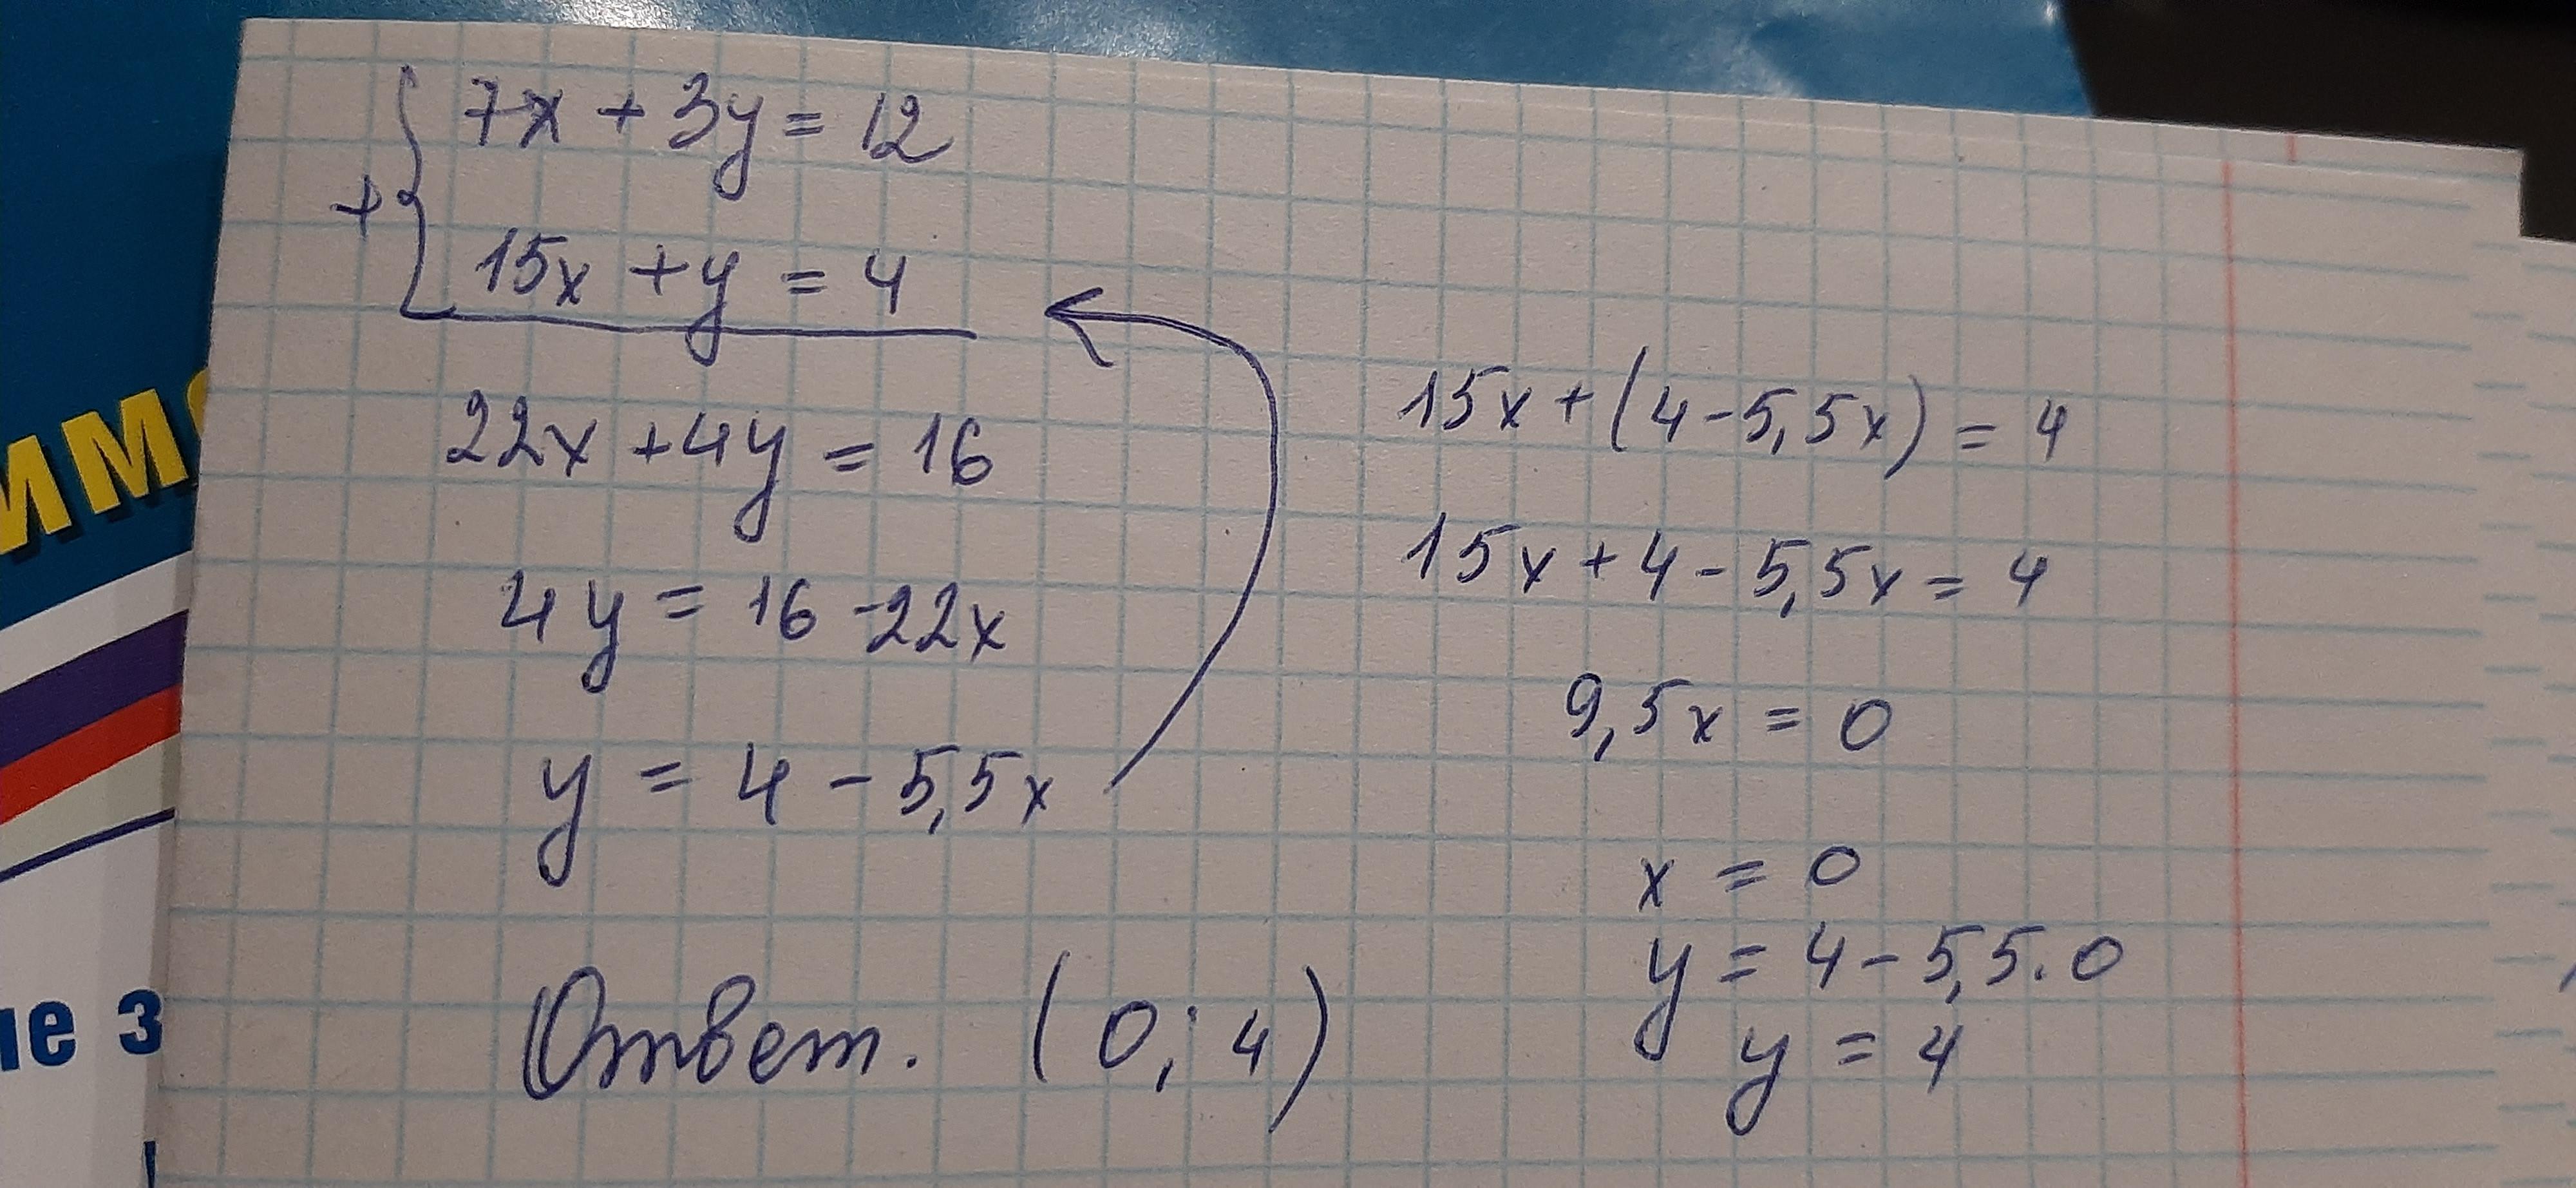 7x + 3y = 12
+
15x + y = 4
22x + 4y = 16
4y = 16 - 22x
y = 4 - 5,5x
15x + (4 - 5,5x) = 4
15x + 4 - 5,5x = 4
9,5x = 0
x = 0
y = 4 - 5,5 · 0
y = 4
Ответ. (0; 4)
им
ие з